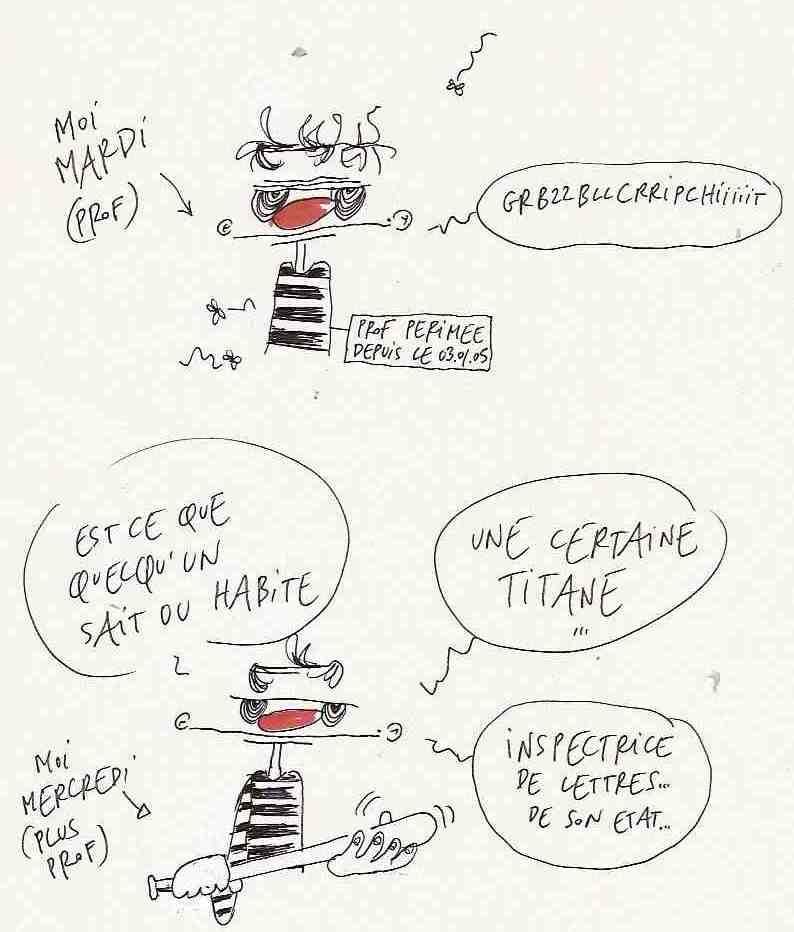 MOi
MARDi
(PROF)
GRBZZBLLCRRiPCHiiiiiT
PROF PERiMEE
DEPUiS LE 03.01.05
EST CE QUE
QUELQU'UN
SAiT OU HABiTE
UNE CERTAiNE
TiTANE
...
iNSPECTRiCE
DE LETTRES...
DE SON ETAT...
MOi
MERCREDi
(PLUS
PROF)